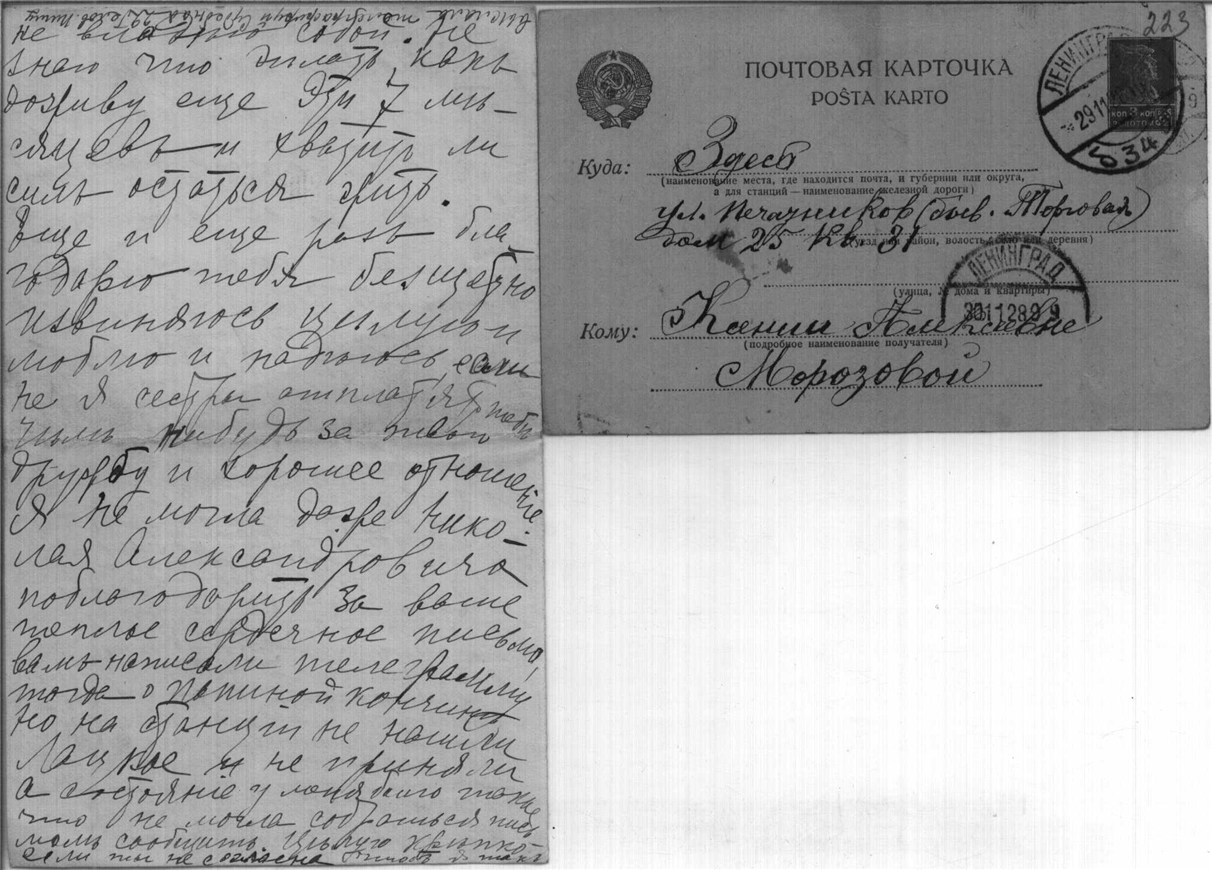 не владею собой. Не
знаю что делать, какъ
доживу еще эти 7 мѣ-
сяцевъ и хватитъ ли
силъ остаться жить.
Еще и еще разъ бла-
годарю тебя безщетно
извиняюсь цѣлую и
люблю и надѣюсь, если
не я сестры отплатятъ тебѣ
чѣмъ нибудь за твою
дружбу и хорошее отношенiе.
Я не могла даже Нико-
лая Александровича
поблагодарить за ваше
теплое сердечное письмо,
вамъ написали телеграмму
тогда о папиной кончинѣ
но на станцiи не нашли
и не приняли
а состоянiе у меня было такое
что не могла собраться пись
момъ сообщить. Цѣлую крѣпко
если ты не согласна
223
ПОЧТОВАЯ КАРТОЧКА
POŜTA KARTO
ЛЕНИНГРАД
29 11
34
Куда: Здесь
(наименование места, где находится почта, и губернии или округа,
а для станций—наименование железной дороги)
ул. Печатников (быв. Торговая)
дом 25 кв. 31
(уезд или район, волость, село или деревня)
(улица, № дома и квартиры)
ЛЕНИНГРАД
30 11 28 9
Кому: Ксении Алексевне
(подробное наименование получателя)
Морозовой